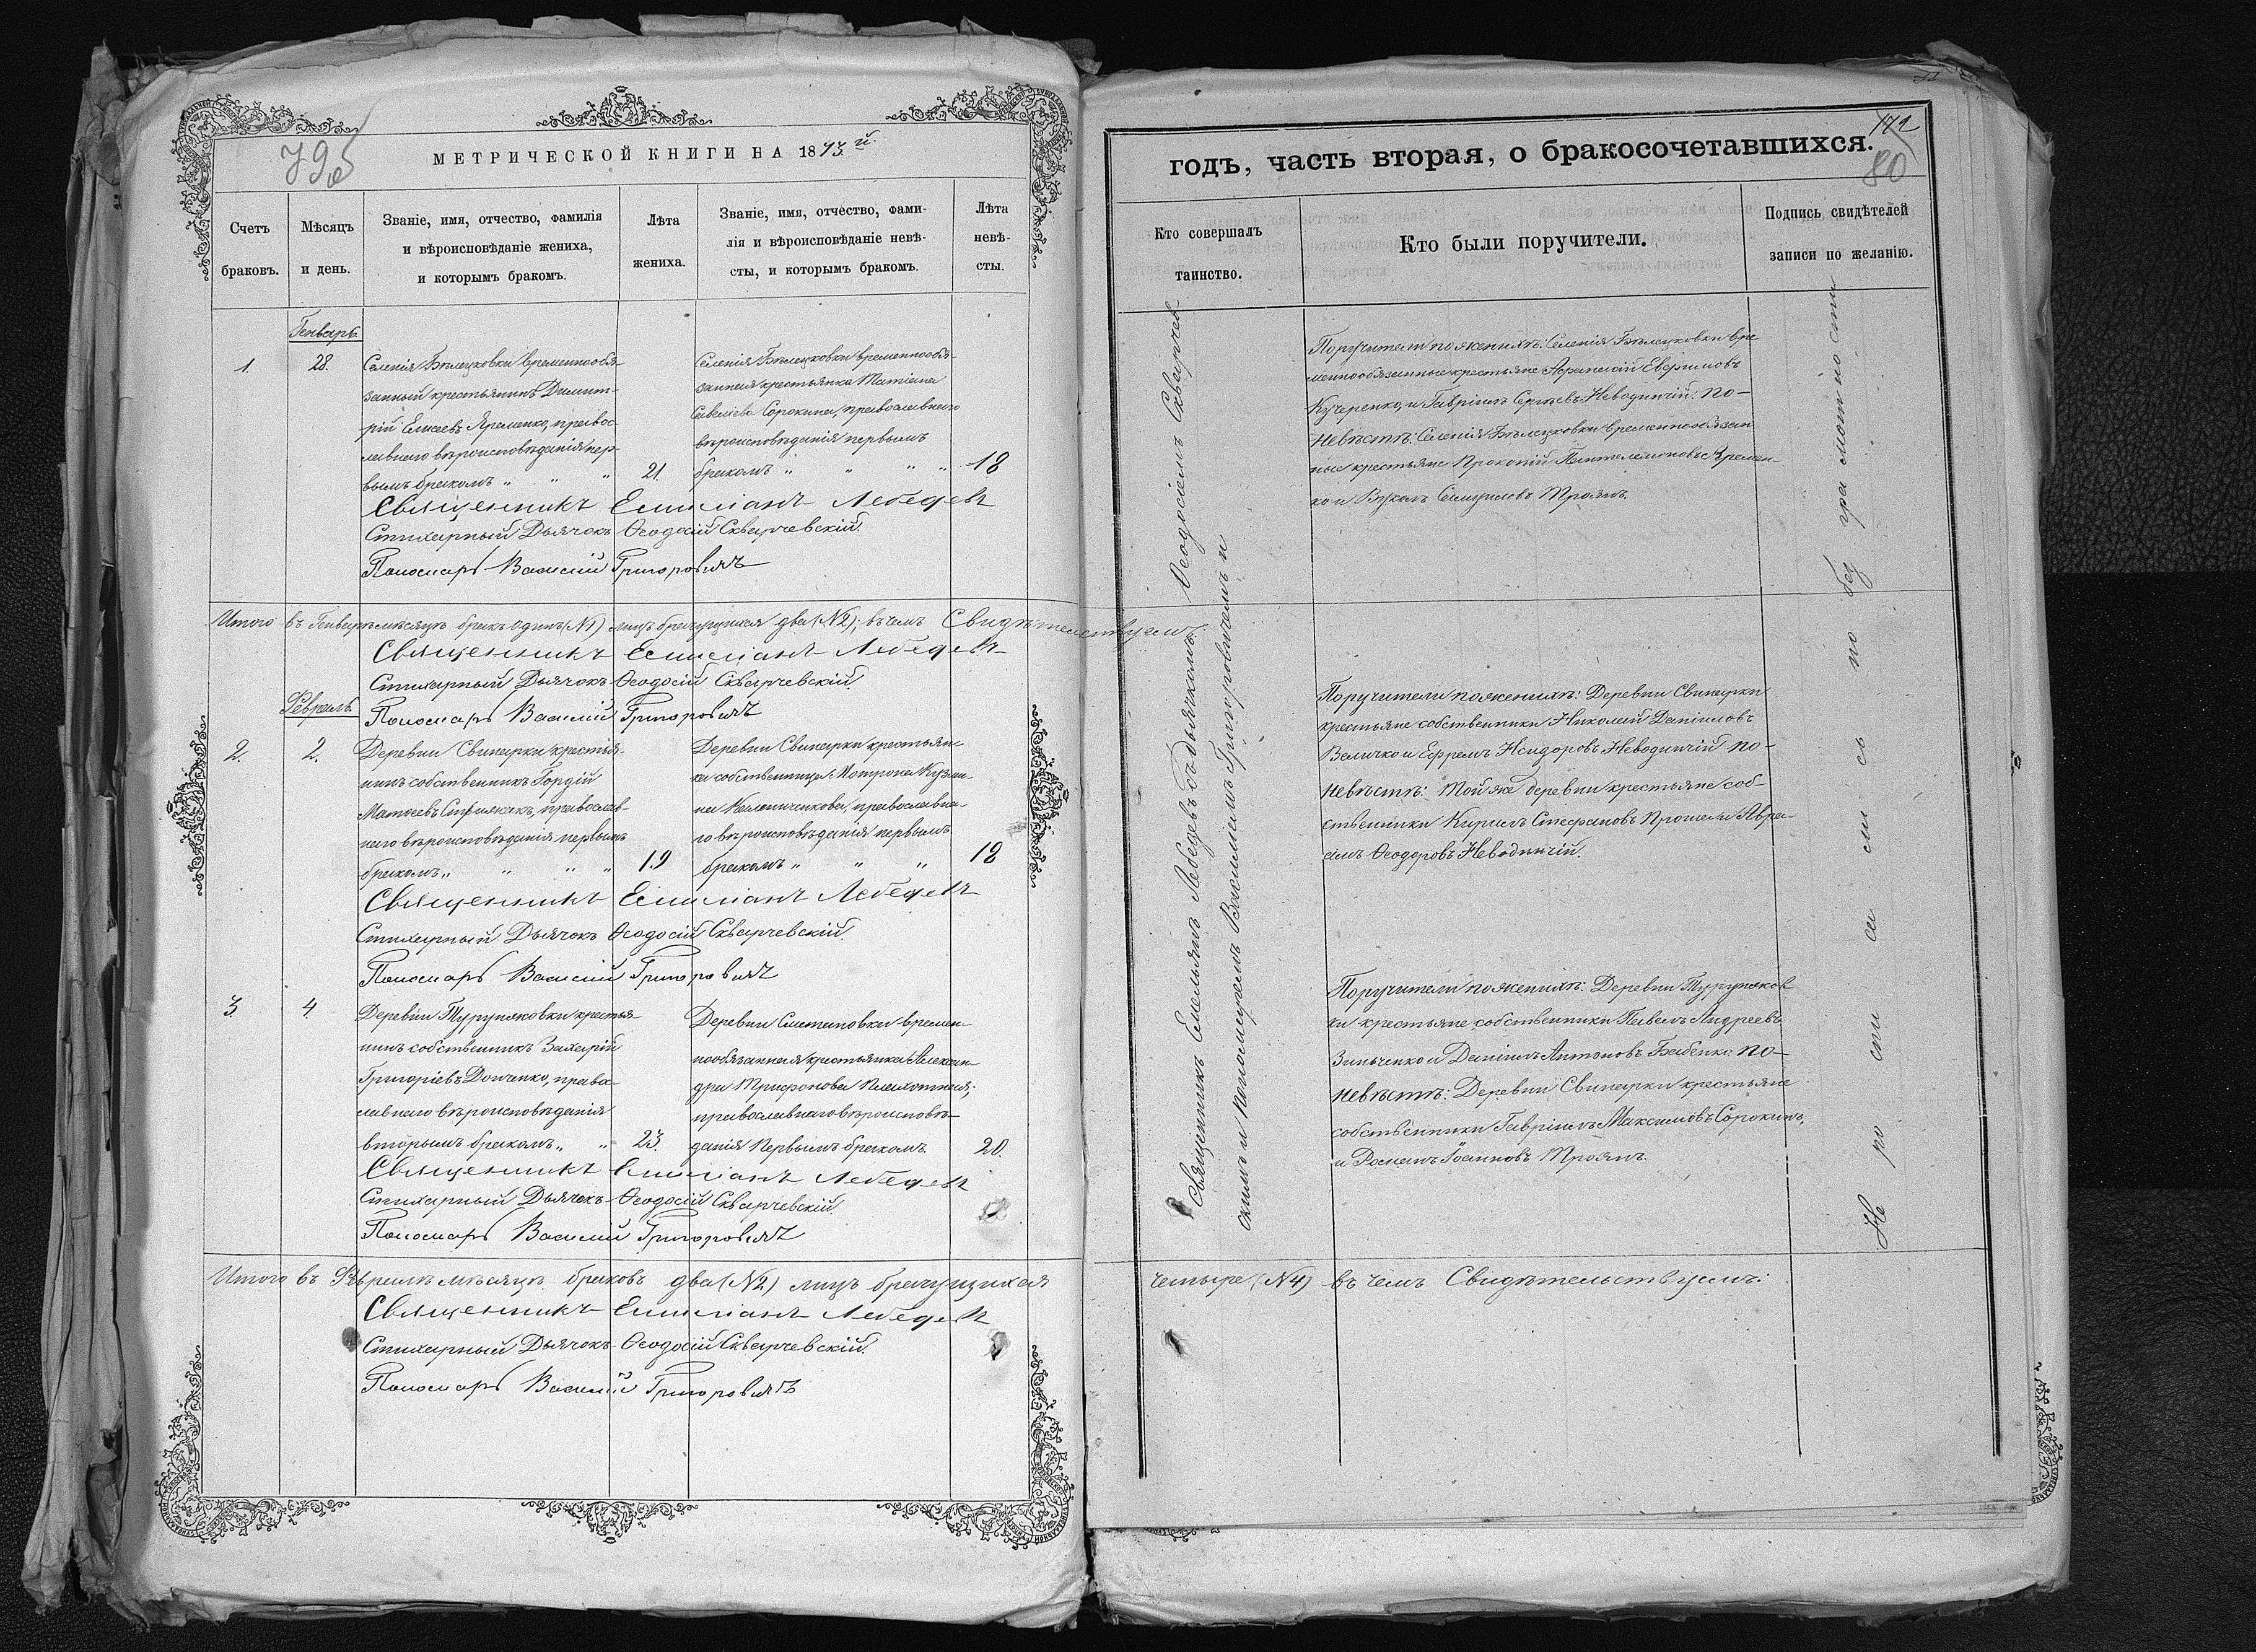 79об
МЕТРИЧЕСКОЙ КНИГИ НА 1873й
Счетъ браковъ.
Мѣсяцъ и день.
Званіе, имя, отчество, фамилія
и вѣроисповѣданіе жениха,
и которымъ бракомъ.
Лѣта жениха.
Званіе, имя, отчество, фами-
лія и вѣроисповѣданіе невѣ-
сты, и которымъ бракомъ.
Лѣта невѣ-
сты.
Генварь
1.
28.
Селенія Бѣлецковки временнообя-
занный крестьянинъ Димит-
рій Елисеевъ Яременко, правос-
лавнаго вѣроисповѣданія пер-
вымъ бракомъ " " "
21.
Селенія Бѣлецковки временнообя-
занная крестьянка Татіана
Савеліева Сорокина, православнаго
вѣроисповѣданія первымъ
бракомъ " " " "
18
Священникъ Емиліанъ Лебедевъ
Стихарный Дьячокъ Ѳеодосій Скварчевскій.
Пономарь Василій Григоровичъ
Итого въ Генварѣ мѣсяцѣ бракъ одинъ (№1) лицъ брачущихся два (№2); въ чемъ Свидѣтельствуемъ
Священникъ Емиліанъ Лебедевъ
Стихарный Дьячокъ Ѳеодосій Скварчевскій.
Февраль.
Пономарь Василій Григоровичъ
2.
2.
Деревни Свинарки крестья-
нинъ собственникъ Гордій
Матѳеевъ православ-
наго вѣроисповѣданія первымъ
бракомъ " " " "
19
Деревни Свинарки крестьян-
ка собственница Мотрона Кузми-
на Калениченкова, православна-
го вѣроисповѣданія первымъ
бракомъ " " "
18
Священникъ Емиліанъ Лебедевъ
Стихарный Дьячокъ Ѳеодосій Скварчевскій.
Пономарь Василій Григоровичъ
3.
4.
Деревни Турунжовки крестья-
нинъ собственникъ Захарій
Григоріевъ Донченко, право-
славнаго вѣроисповѣданія
вторымъ бракомъ " "
23.
Деревни Сметановки времен-
нообязанная крестьянка Алексан-
дра Трифонова Плахотная;
православнаго вѣроисповѣ-
данія первымъ бракомъ.
20.
Священникъ Емиліанъ Лебедевъ
Стихарный Дьячокъ Ѳеодосій Скварчевскій.
Пономарь Василій Григоровичъ
Итого въ Февралѣ мѣсяцѣ браковъ два (№2) лицъ брачущихся
Священникъ Емиліанъ Лебедевъ
Стихарный Дьячокъ Ѳеодосій Скварчевскій.
Пономарь Василій Григоровичъ
172
80
годъ, часть вторая, о бракосочетавшихся.
Кто совершалъ
таинство.
Кто были поручители.
Подпись свидѣтелей
записи по желанію.
Священникъ Емельянъ Лебедевъ съ дьячкомъ Ѳеодосіемъ Скварчев-
скимъ и пономаремъ Василіемъ Григоровичемъ и
Поручители по женихѣ: Селенія Бѣлецковки вре
меннообязанные крестьяне Аѳанасій Евфимовъ
Кучеренко, и Гавріилъ Сергѣевъ Неводничій. По-
невѣстѣ: Селенія Бѣлецковки временнообязан
ные крестьяне Прокопій Пантелемоновъ Яремен-
ко и Вуколъ Самуиловъ Троянъ.
Поручители по женихѣ: Деревни Свинарки
крестьяне собственники Николай Даніиловъ
Величко и Ефремъ Исидоровъ Неводничій По-
невѣстѣ: Той же деревни крестьяне соб-
ственники Кирилъ Стефановъ и Авра-
амъ Ѳеодоровъ Неводничій.
Поручители по женихѣ: Деревни Турунжов
ки крестьяне собственники Павелъ Андреевъ
Зинченко и Даніилъ Антоновъ Бабенко. По-
невѣстѣ: Деревни Свинарки крестьяне
собственники Гавріилъ Максимовъ Сорокинъ,
и Романъ Іоанновъ Троянъ.
по без грамотности
четыре (№4) въ чемъ Свидѣтельствуемъ: